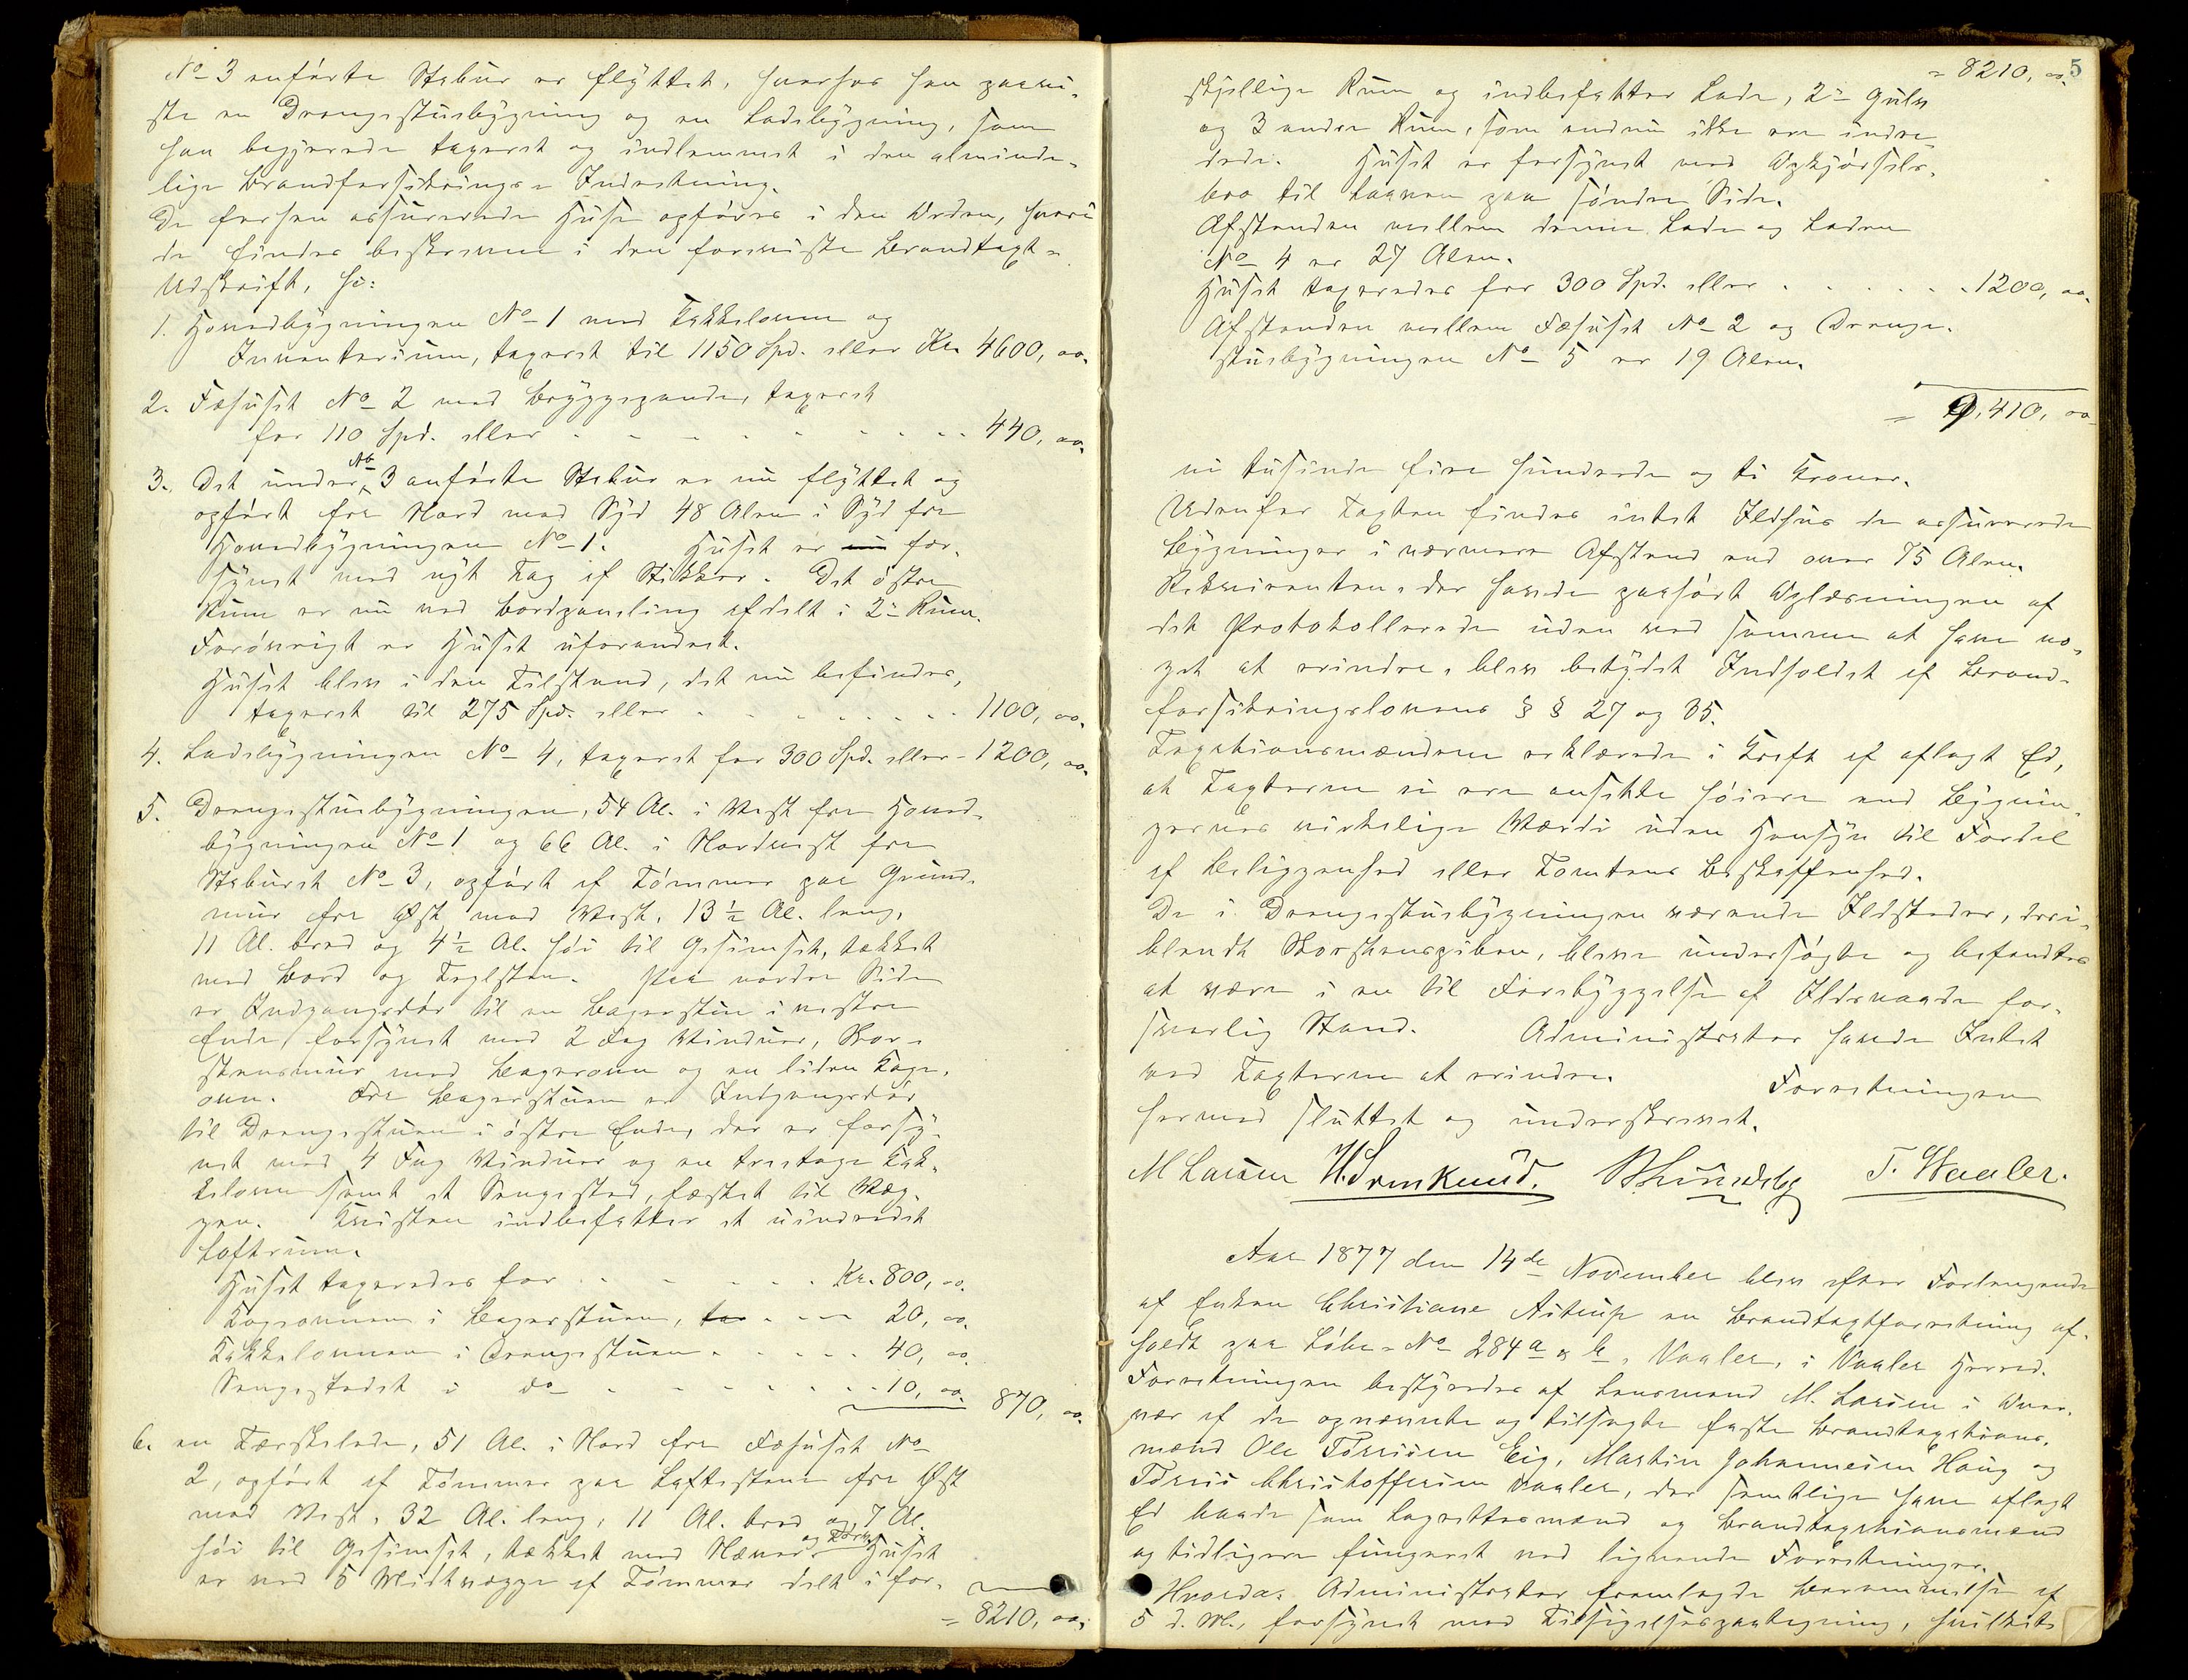 No 3 anførte Stabur er flyttet, hvorhos han paavi-
ste en Drengestuebygning og en Ladebygning, som
han begjærede taxeret og indlemmet i den alminde-
lige Brandforsikrings-Indretning.
De forhen assurerede Huse opføres i den Orden, hvori
de findes beskrevne i den foreviste Brandtaxt-
Udskrift, so:
1. Hovedbygningen No 1 med Kakkelovne og
Inventarium, taxeret til 1150 Spd. eller Kr. 4600, 00.
2. Fæhuset No 2 med Bryggepande, taxeret
for 110 Spd. eller - - - - - - - - 440, 00.
3. Det under No 3 anførte Stabur er nu flyttet og
opført fra Nord mod Syd 48 Alen i Syd fra
Hovedbygningen No 1. Huset er nu for-
synet med nyt Tag af Stikker. Det østre
Rum er nu ved Bordpaneling afdelt i 2de Rum.
Forøvrigt er Huset uforandret.
Huset blev i den Tilstand, det nu befindes,
taxeret til 275 Spd. eller - - - - - - - 1100, 00.
4. Ladebygningen No 4, taxeret for 300 Spd. eller - 1200, 00.
5. Drengestuebygningen, 54 Al. i Vest fra Hoved-
bygningen No 1 og 66 Al. i Nordvest fra
Staburet No 3, opført af Tømmer paa Grund-
mur fra Øst mod Vest, 13 1/2 Al. lang,
11 Al. bred og 4 1/2 Al. høi til Gesimset, tækket
med Bord og Teglsten. Paa nordre Side
er Indgangsdør til en Bagerstue i vestre
Ende, forsynet med 2 Fag Vinduer, Skor-
stensmur med Bagerovn og en liden Koge-
ovn. Fra Bagerstuen er Indgangsdør
til Drengestuen i østre Ende, der er forsy-
net med 4 Fag Vinduer og en treetages Kak-
kelovn samt et Sengested, fæstet til Væg-
gen. Kvisten indbefatter et uindredet
Loftrum.
Huset taxeredes for - - - - - - Kr. 800, 00.
Kogeovnen i Bagerstuen, for - - - 20, 00.
Kakkelovnen i Drengestuen - - - - - 40, 00.
Sengestedet i do - - - - - - - 10, 00. 870, 00.
6. en Tærskelade, 51 Al. i Nord fra Fæhuset No
2, opført af Tømmer paa Løftestene fra Øst
mod Vest, 32 Al. lang, 11 Al. bred og 7 Al.
høi til Gesimset, tækket med Næver og Torv. Huset
er ved 5 Midtvægge af Tømmer delt i for-
= 8210, 00.
5
= 8210, 00.
skjellige Rum og indbefatter Lade, 2de Gulv
og 3 andre Rum, som endnu ikke ere indre-
dede. Huset er forsynet med Opkjørsels-
bro til Laaven paa søndre Side.
Afstanden mellem denne Lade og Laden
No 4 er 27 Alen.
Huset taxeredes for 300 Spd. eller - - - - - - 1200, 00.
Afstanden mellem Fæhuset No 2 og Drenge-
stuebygningen No 5 er 19 Alen.
= 9,410, 00
ni tusinde fire hundrede og ti Kroner.
Udenfor Taxten findes intet Ildhus de assurerede
Bygninger i nærmere Afstand end over 75 Alen.
Rekvirenten, der havde paahørt Oplæsningen af
det Protokollerede uden ved samme at have no-
get at erindre, blev betydet Indholdet af Brand-
forsikringslovens § § 27 og 35.
Taxationsmændene erklærede i Kraft af aflagt Ed,
at Taxterne ei ere ansatte høiere end Bygnin-
gernes virkelige Værdi uden Hensyn til Fordel
af Beliggenhed eller Tomtens Beskaffenhed.
De i Drengestuebygningen værende Ildsteder, deri-
blandt Skorstenspiben, bleve undersøgte og befandtes
at være i en til Forebyggelse af Ildsvaade for-
svarlig Stand. Administrator havde Intet
ved Taxterne at erindre. Forretningen
hermed sluttet og underskrevet.
M Larsen H. Svenkerud. T. Waaler.
Aar 1877 den 14de November blev efter Forlangende
af Enken Christiane Astrup en Brandtaxtforretning af-
holdt paa Løbe-No 284 a & b, Vaaler, i Vaaler Herred.
Forretningen bestyredes af Lensmand M. Larsen i Over-
vær af de opnævnte og tilsagte faste Brandtaxtions-
mænd Ole Tørrisen Eig, Martin Johannesen Haug og
Tørris Christoffersen Vaaler, der samtlige have aflagt
Ed baade som Lagrettesmænd og Brandtaxtionsmænd
og tidligere fungeret ved lignende Forretninger.
Hvorda: Administrator fremlagde Berammelse af
5 d. M., forsynet med Tilsigelsespaategning, hvilket